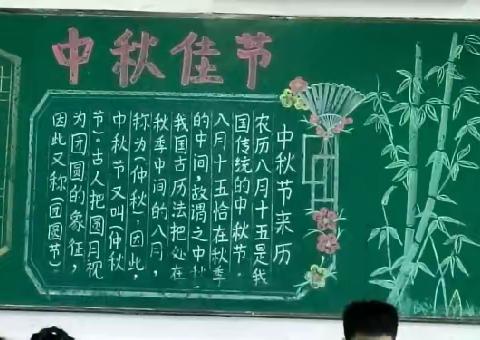 中秋佳节
中秋节来历
农历八月十五是我
国传统的中秋节。
八月十五恰在秋季
的中间,故谓之中秋
我国古历法把处在
秋季中间的八月,
称为(仲秋),因此,
中秋节又叫(仲秋
节)。古人把圆月视
为团圆的象征,
因此又称(团圆节)